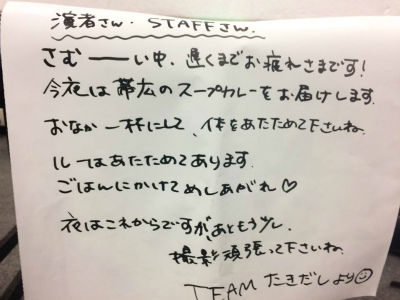 演者さん・STAFFさん.
さむーーい中、遅くまでお疲れさまです!
今夜は帯広のスープカレーをお届けします.
おなか一杯にして、体をあたためて下さいね.
ルーはあたためてあります.
ごはんにかけてめしあがれ♡
夜はこれからですが、あともう少し.
撮影頑張って下さいね.
TEAM たきだしより☺